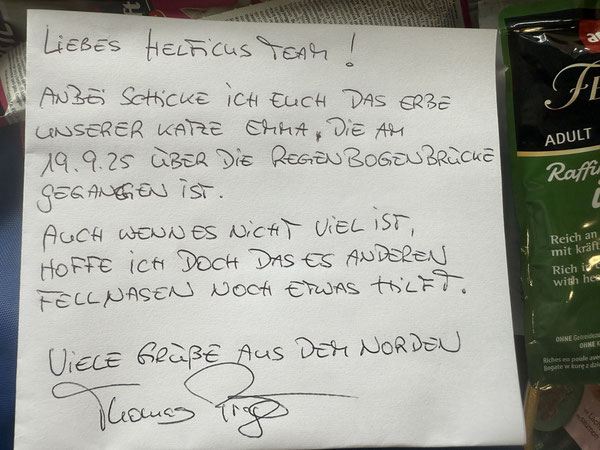 LIEBES HELFICUS TEAM!
ANBEI SCHICKE ICH EUCH DAS ERBE
UNSERER KATZE EMMA, DIE AM
19.9.25 ÜBER DIE REGENBOGENBRÜCKE
GEGANGEN IST.
AUCH WENN ES NICHT VIEL IST,
HOFFE ICH DOCH DAS ES ANDEREN
FELLNASEN NOCH ETWAS HILFT.
VIELE GRÜßE AUS DEM NORDEN
Thomas
ADULT
Raffin
Reich an
mit kräft
Rich in
with he
OHNE
OHNE